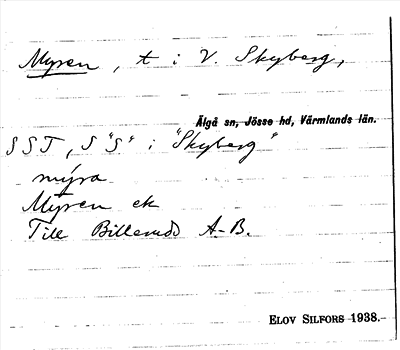 Myren, t i V. Skyberg,
Älgå sn, Jösse hd, Värmlands län.
SST, S "S" i "Skyberg"
mýra
Myren ek
Till Billeruds A-B.
ELOV SILFORS 1938.